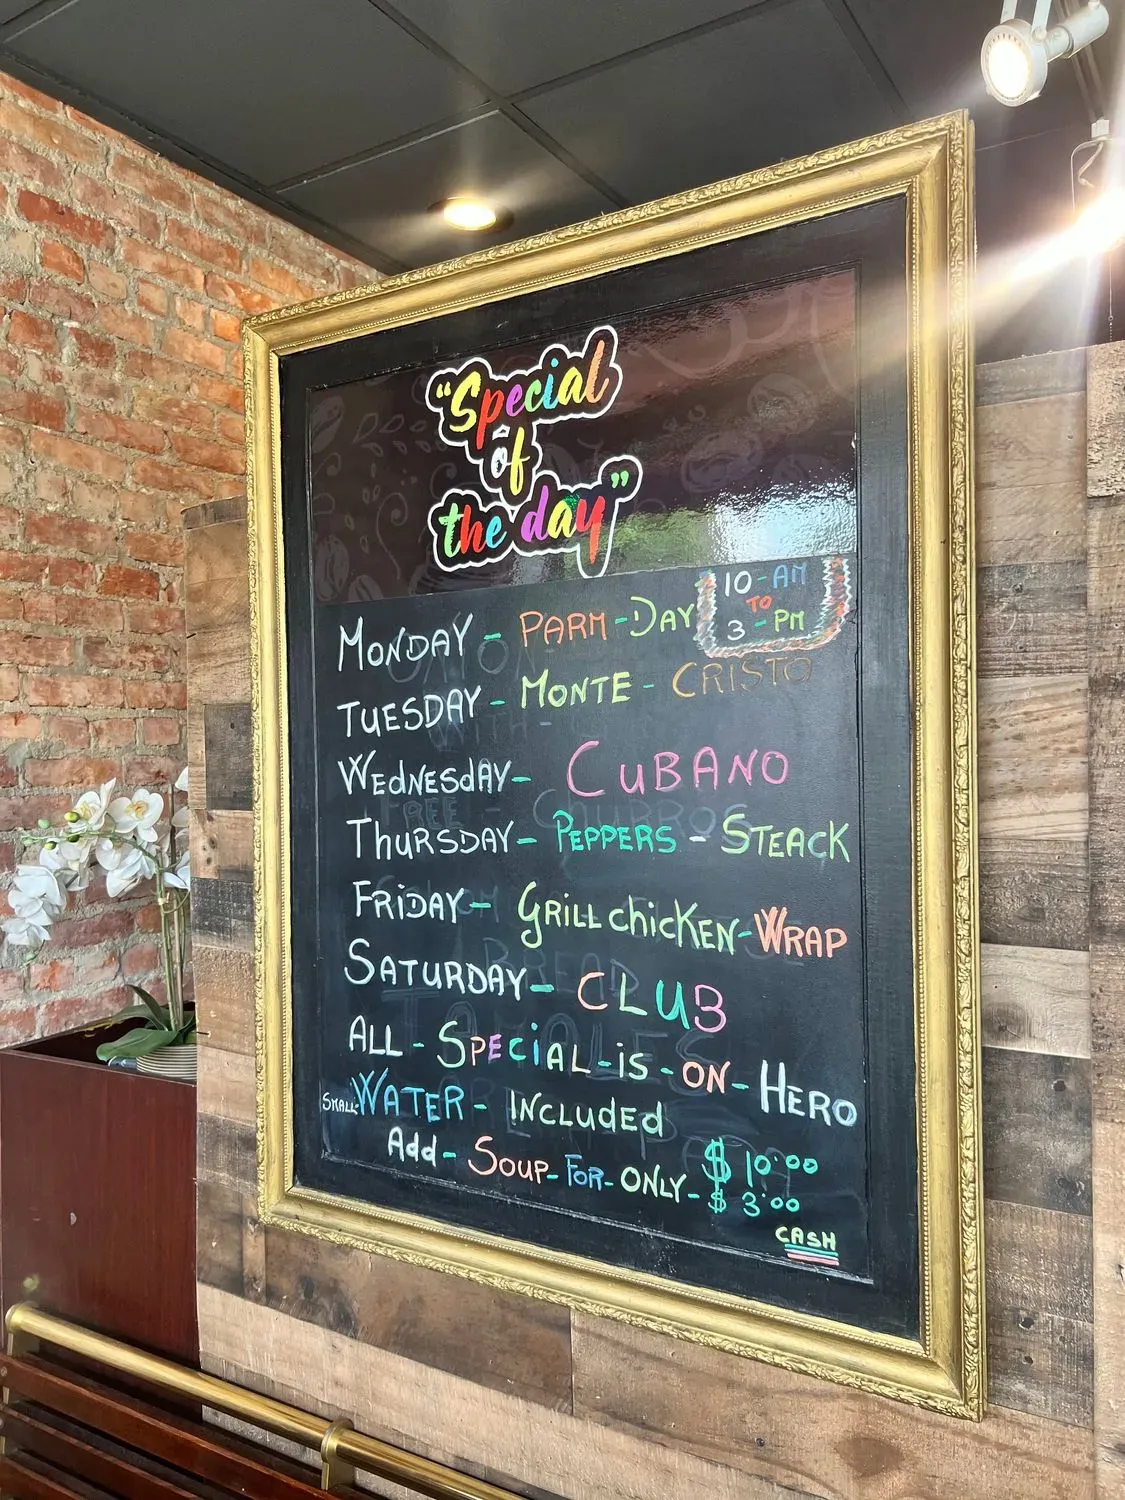 "Special
of
the day"
10-AM
TO
3-PM
MONDAY - PARM-DAY
TUESDAY - MONTE - CRISTO
WEDNESDAY- CUBANO
THURSDAY- PEPPERS - STEACK
FRIDAY- GRILL chicKEN-WRAP
SATURDAY- CLUB
ALL - SPECiAL-iS-ON-HERO
SMALL-WATER- INCLUDED
$10.00
Add- SOUP-FOR-ONLY-$3.00
CASH